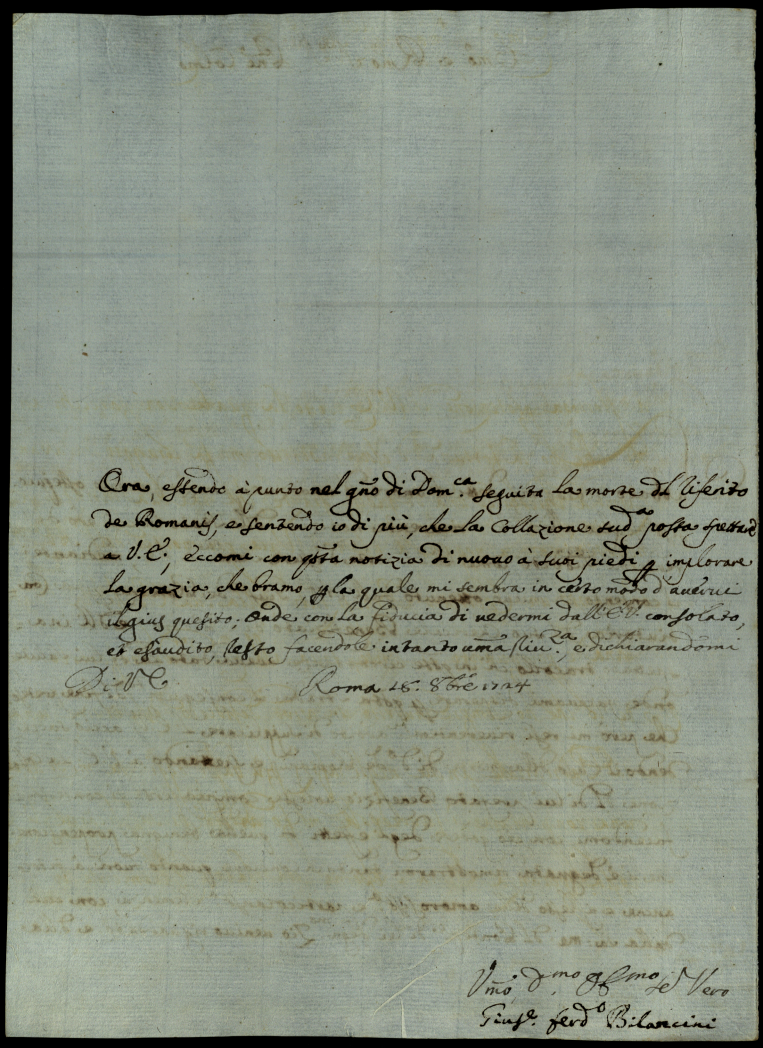 Ora, essendo à punto nel gño di Dom.ca seguita la morte del riferito
de Romanis, e sentendo io di più, che la Collazione sud.a posta spetta
a V. E., èccomi con qsta notizia di nuovo à suoi piedi p implorare
la grazia, che bramo, p la quale mi sembra in certo modo d'averci
il gius quesito. Onde con la fiducia di vedermi dall'E.V. consolato,
et esàudito, resto facendole intanto umã riu.za, e dichiarandomi
Di V E
Roma 28. 8bre 1724
Vmõ, D.mo Vero
Gius.e Ferd.o Bilancini